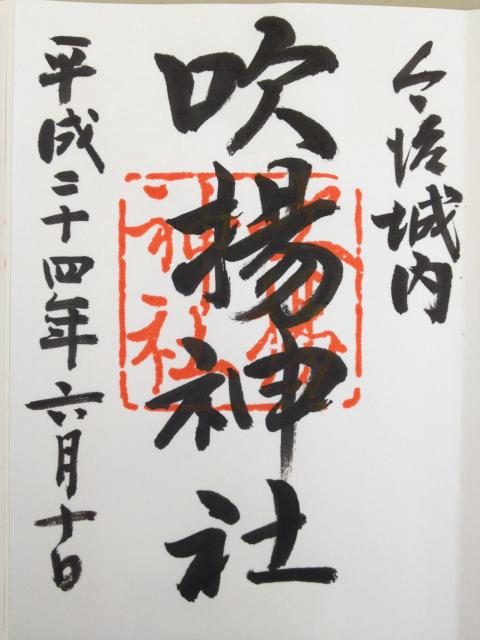 今治城内
吹揚神社
平成二十四年六月十日